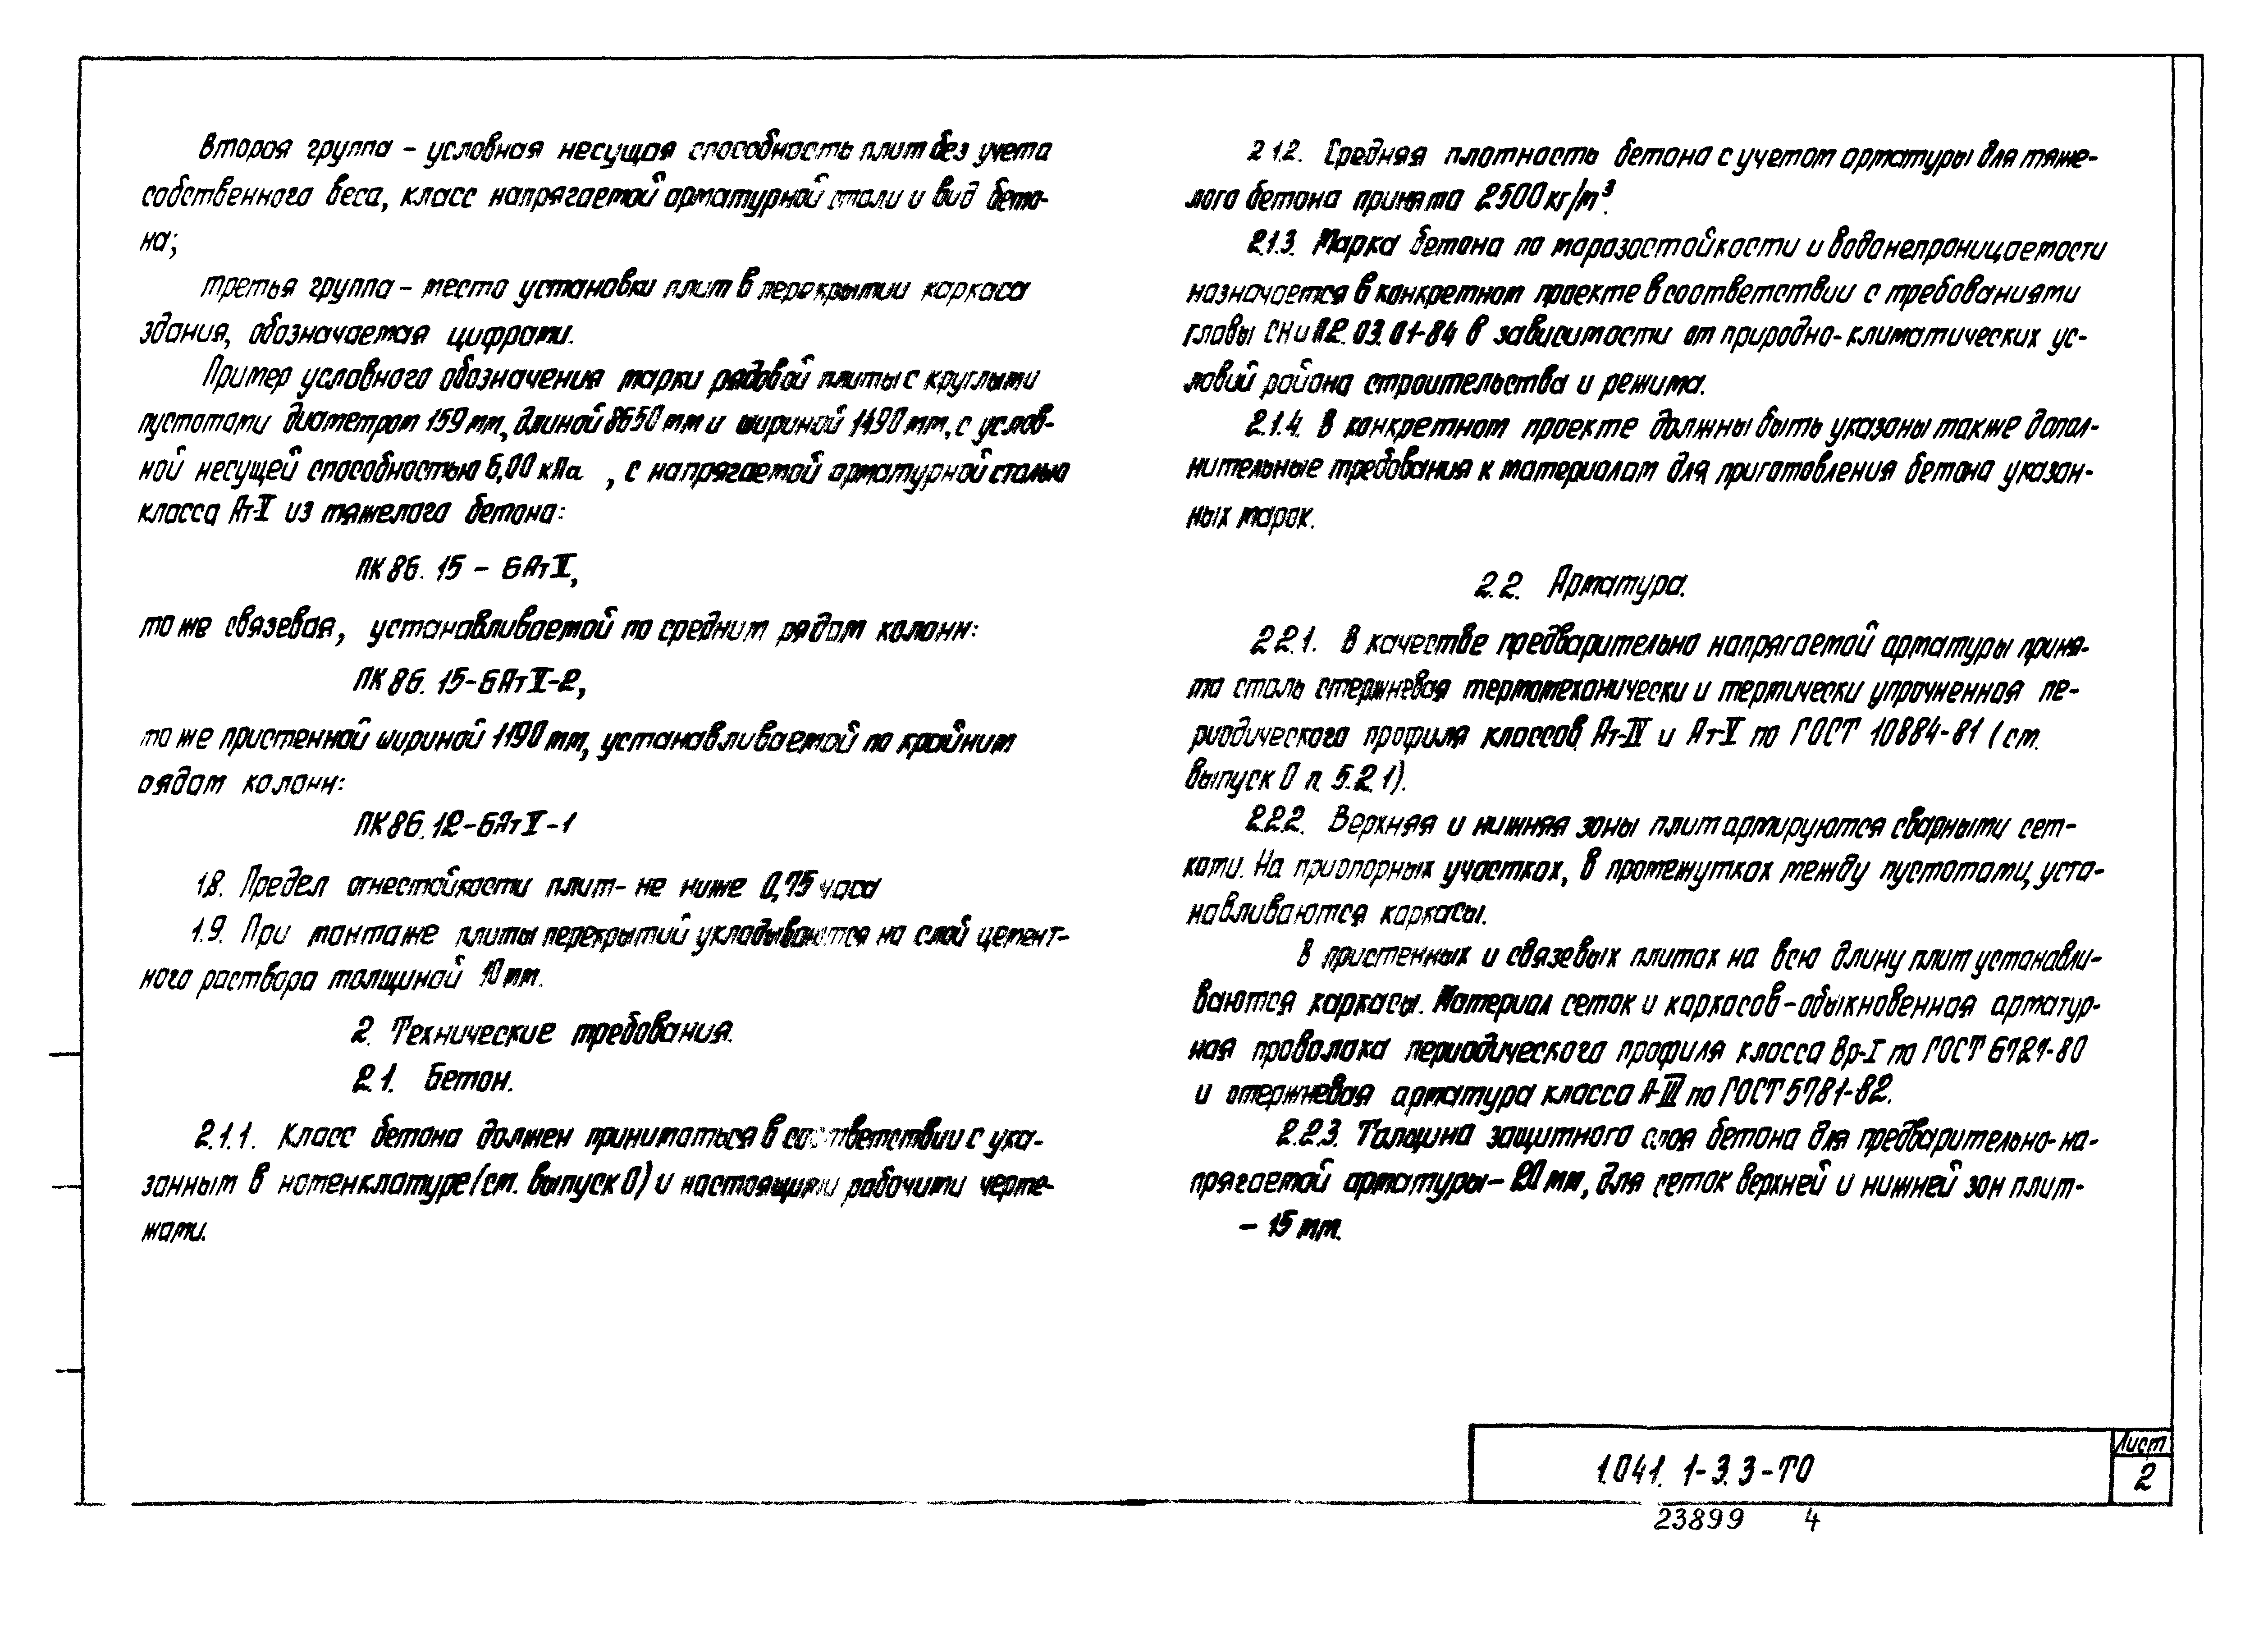 Вторая группа – условная несущая способность плит без учета
собственного веса, класс напрягаемой арматурной стали и вид бето-
на;
третья группа – место установки плит в перекрытии каркаса
здания, обозначаемая цифрами.
Пример условного обозначения марки рядовой плиты с круглыми
пустотами диаметром 159 мм, длиной 8650 мм и шириной 1490 мм, с услов-
ной несущей способностью 6,00 кПа , с напрягаемой арматурной сталью
класса Ат-V из тяжелого бетона:
ПК 86. 15 – 6АтV,
то же связевая, устанавливаемой по средним рядам колонн:
ПК 86. 15-6АтV-2,
то же пристенной шириной 1190 мм, устанавливаемой по крайним
рядам колонн:
ПК 86. 12-6АтV-1
1.8. Предел огнестойкости плит- не ниже 0,75 часа
1.9. При монтаже плиты перекрытий укладываются на слой цемент-
ного раствора толщиной 10 мм.
2. Технические требования.
2.1. Бетон.
2.1.1. Класс бетона должен приниматься в соответствии с ука-
занным в номенклатуре (см. выпуск 0) и настоящими рабочими черте-
жами.
2.1.2. Средняя плотность бетона с учетом арматуры для тяже-
лого бетона принята 2500 кг/м³.
2.1.3. Марка бетона по морозостойкости и водонепроницаемости
назначается в конкретном проекте в соответствии с требованиями
главы СНиП2. 03. 01-84 в зависимости от природно-климатических ус-
ловий района строительства и режима.
2.1.4. В конкретном проекте должны быть указаны также допол-
нительные требования к материалам для приготовления бетона указан-
ных марок.
2.2. Арматура.
2.2.1. В качестве предварительно напрягаемой арматуры приня-
та сталь стержневая термомеханически и термически упрочненная пе-
риодического профиля классов Ат-IV и Ат-V по ГОСТ 10884-81 (см.
выпуск 0 п. 5.2.1).
2.2.2. Верхняя и нижняя зоны плит армируются сварными сет-
ками. На приопорных участках, в промежутках между пустотами, уста-
навливаются каркасы.
В пристенных и связевых плитах на всю длину плит устанавли-
ваются каркасы. Материал сеток и каркасов – обыкновенная арматур-
ная проволока периодического профиля класса Вр-I по ГОСТ 6727-80
и стержневая арматура класса А-III по ГОСТ 5781-82.
2.2.3. Толщина защитного слоя бетона для предварительно-на-
прягаемой арматуры – 20 мм, для сеток верхней и нижней зон плит-
– 15 мм.
1.041. 1-3. 3-ТО
Лист
2
23899 4